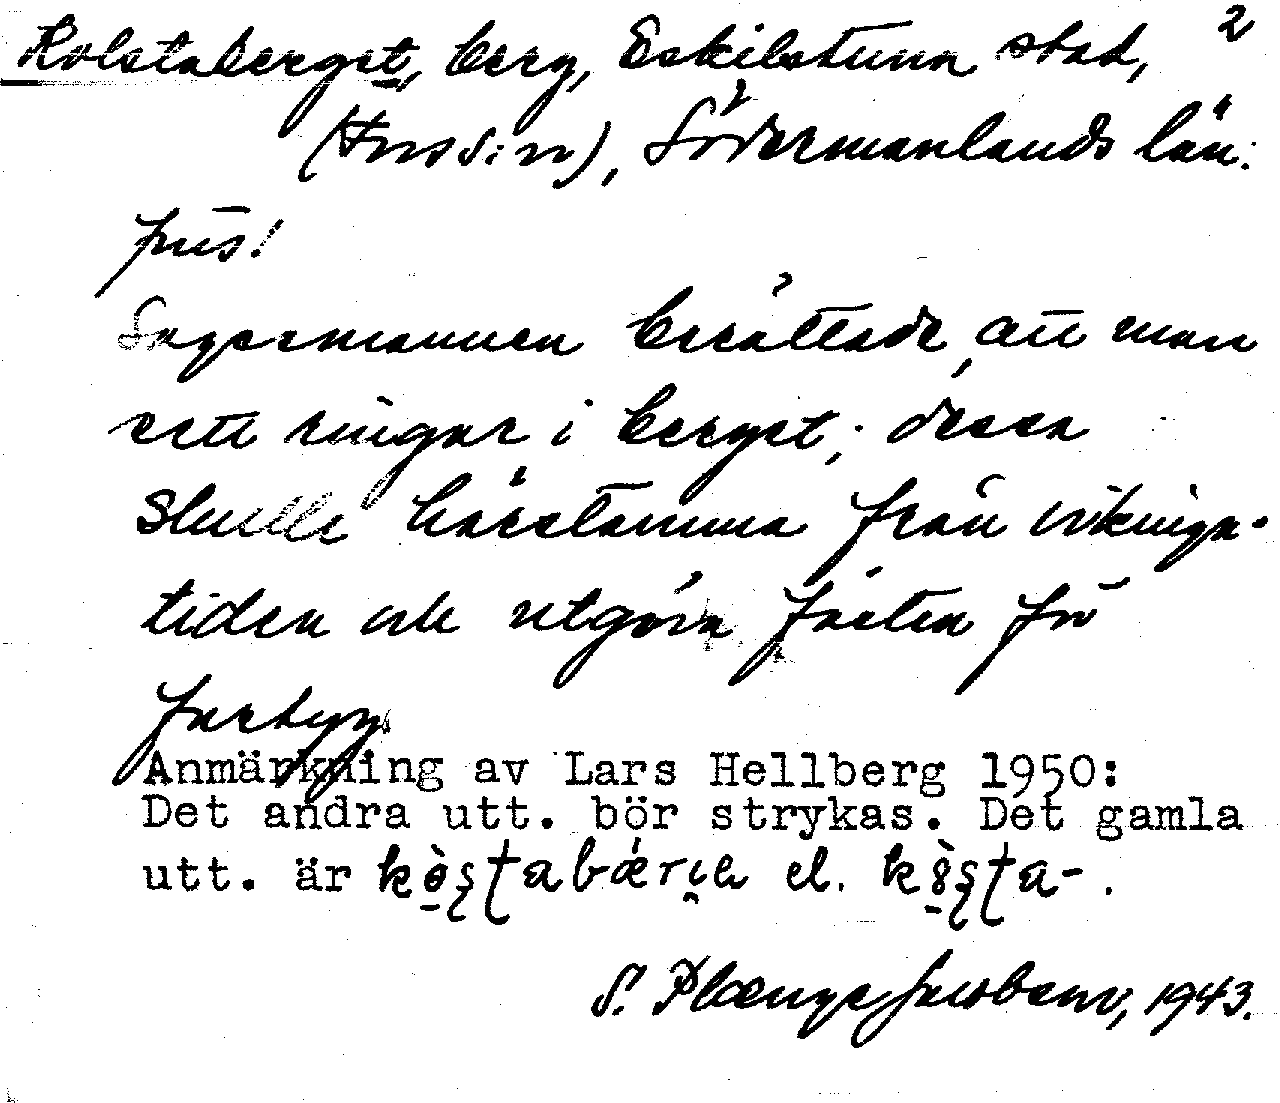 Kolstaberget, berg, Eskilstuna stad, 2
(Fors s:n), Södermanlands län:
fris!
Sagesmannen berättade, att man
sett ringar i berget; dessa
skulle härstamma från vikinga-
tiden och utgöra fästen för
fartyg.
Anmärkning av Lars Hellberg 1950:
Det andra utt. bör strykas. Det gamla
utt. är el.
S. Plænge Jacobsen, 1943.